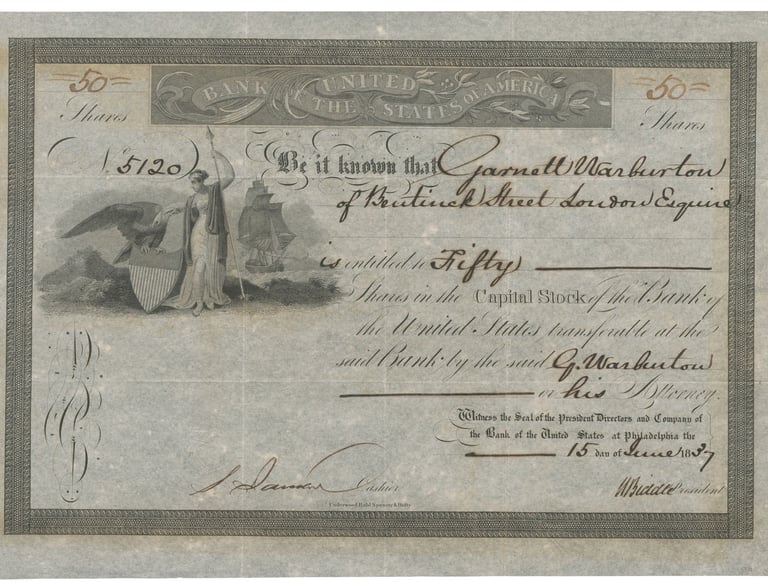 50
50
BANK OF THE UNITED STATES OF AMERICA
Shares
Shares
No. 5120
Be it known that Garnett Warburton
of Bentinck Street London Esquire
is entitled to Fifty
Shares in the Capital Stock of the Bank of
the United States transferable at the
said Bank by the said G. Warburton
or his Attorney.
Witness the Seal of the President Directors and Company of
the Bank of the United States at Philadelphia the
15 day of June 1837
Cashier
N Biddle President
Underwood Bald Spencer & Hufty